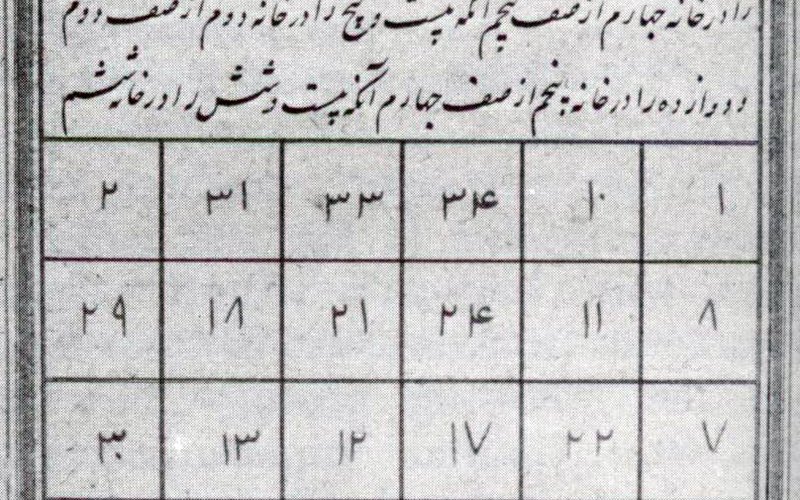 را در خانه چهارم از صف پنجم آنگه بیست و پنج را در خانه دوم از صف دوم
و دوازده را در خانه پنجم از صف چهارم آنگه بیست و شش را در خانه ششم
۱ ۱۰ ۳۴ ۳۳ ۳۱ ۲
۸ ۱۱ ۲۴ ۲۱ ۱۸ ۲۹
۷ ۲۲ ۱۷ ۱۲ ۱۳ ۳۰